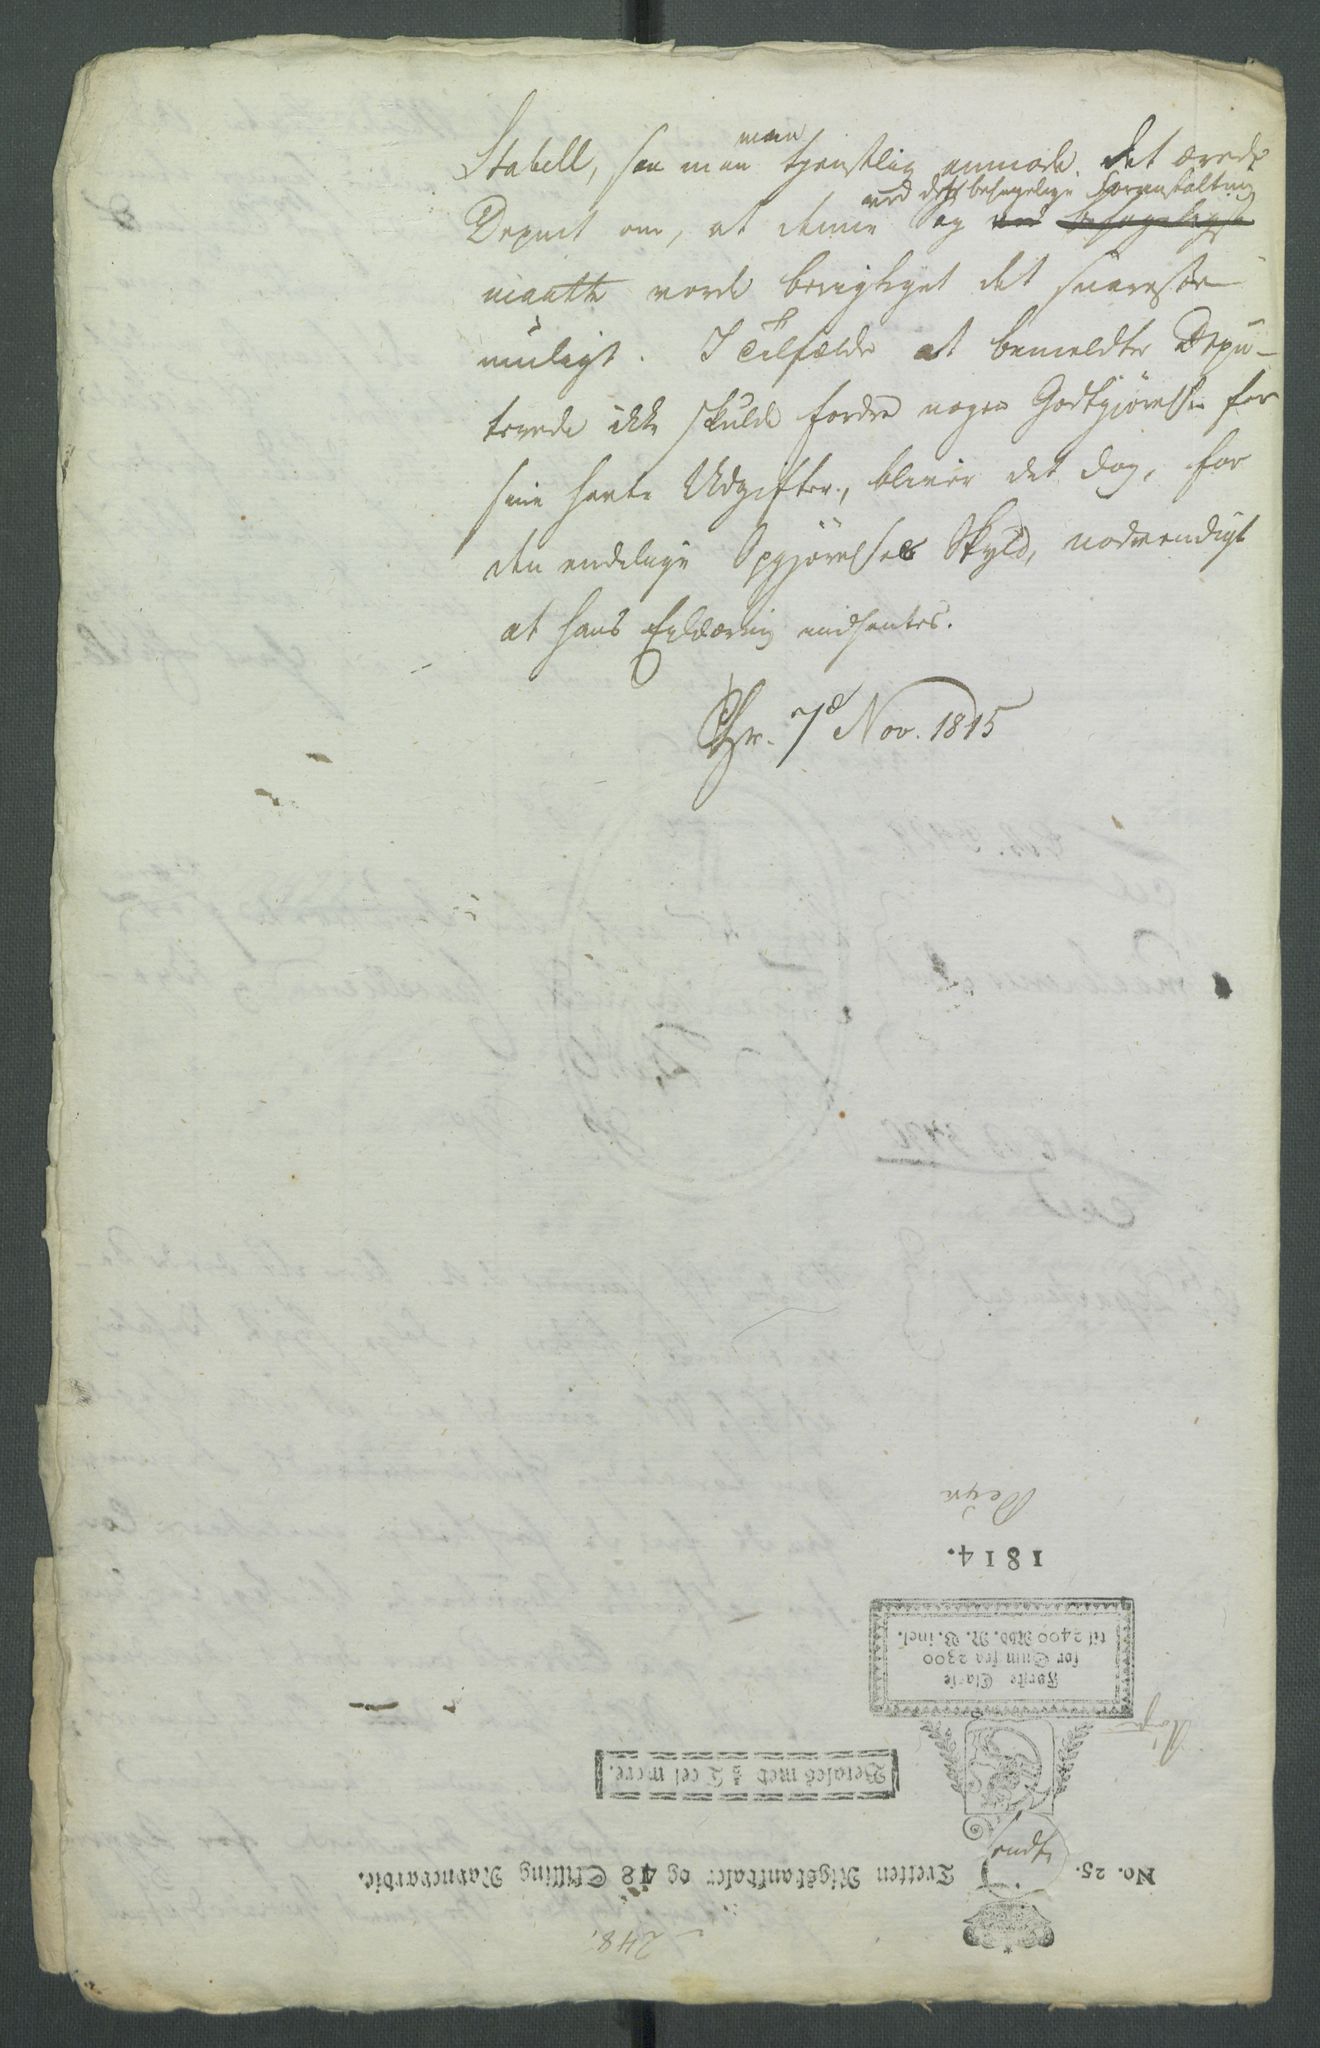 man
Stabell, saa man tjenstlig anmode det ærede
ved dets behagelige Foranstaltning
Depmt om, at denne Sag ved behageligst
maatte vorde berigtiget det snareste
muligt. I Tilfælde at bemeldte Depu-
terede ikke skulde fordre nogen Godtgjørelse for
sine havte Udgifter, bliver det dog, for
den endelige Opgjørelses Skyld, nødvendigt
at hans Erklæring indhentes.
Chr. 7de Nov. 1815
1814.
Første Classe
for Sum fra 2300
til 2400 Rbd. N. V. incl.
Betales med ⅓ Deel mere.
sendt
No. 25. Tretten Rigsbankdaler og 48 Skilling Navneværdie.
248.